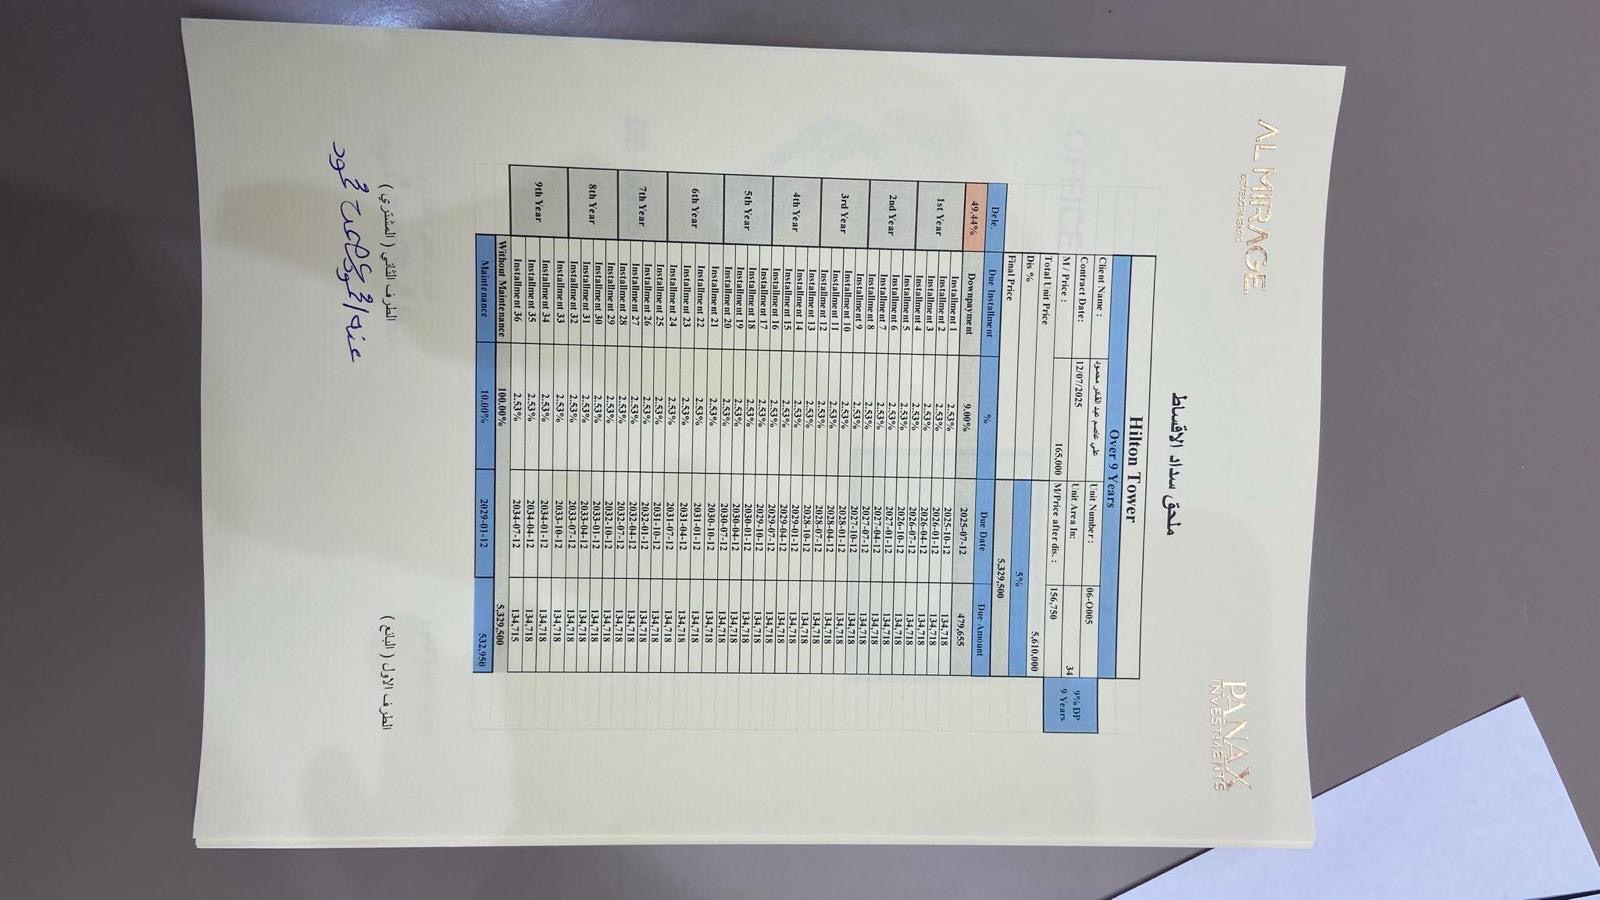 AL MIRAGE
DEVELOPMENTS
PANAX
INVESTMENTS
ملحق سداد الاقساط
Hilton Tower
Over 9 Years
Client Name : علي عاصم عبد القادر محمود Unit Number : 06-O005
Contract Date: 12/07/2025 Unit Area In: 34
M / Price : 165,000 M/Price after dis. : 156,750
9% DP
9 Years
Total Unit Price 5,610,000
Dis % 5%
Final Price 5,329,500
Dele. Due Installment % Due Date Due Amount
49.44% Downpayment 9.00% 2025-07-12 479,655
1st Year
Installment 1 2.53% 2025-10-12 134,718
Installment 2 2.53% 2026-01-12 134,718
Installment 3 2.53% 2026-04-12 134,718
Installment 4 2.53% 2026-07-12 134,718
2nd Year
Installment 5 2.53% 2026-10-12 134,718
Installment 6 2.53% 2027-01-12 134,718
Installment 7 2.53% 2027-04-12 134,718
Installment 8 2.53% 2027-07-12 134,718
3rd Year
Installment 9 2.53% 2027-10-12 134,718
Installment 10 2.53% 2028-01-12 134,718
Installment 11 2.53% 2028-04-12 134,718
Installment 12 2.53% 2028-07-12 134,718
4th Year
Installment 13 2.53% 2028-10-12 134,718
Installment 14 2.53% 2029-01-12 134,718
Installment 15 2.53% 2029-04-12 134,718
Installment 16 2.53% 2029-07-12 134,718
5th Year
Installment 17 2.53% 2029-10-12 134,718
Installment 18 2.53% 2030-01-12 134,718
Installment 19 2.53% 2030-04-12 134,718
Installment 20 2.53% 2030-07-12 134,718
6th Year
Installment 21 2.53% 2030-10-12 134,718
Installment 22 2.53% 2031-01-12 134,718
Installment 23 2.53% 2031-04-12 134,718
Installment 24 2.53% 2031-07-12 134,718
7th Year
Installment 25 2.53% 2031-10-12 134,718
Installment 26 2.53% 2032-01-12 134,718
Installment 27 2.53% 2032-04-12 134,718
Installment 28 2.53% 2032-07-12 134,718
8th Year
Installment 29 2.53% 2032-10-12 134,718
Installment 30 2.53% 2033-01-12 134,718
Installment 31 2.53% 2033-04-12 134,718
Installment 32 2.53% 2033-07-12 134,718
9th Year
Installment 33 2.53% 2033-10-12 134,718
Installment 34 2.53% 2034-01-12 134,718
Installment 35 2.53% 2034-04-12 134,718
Installment 36 2.53% 2034-07-12 134,715
Without Maintenance 100.00% 5,329,500
Maintenance 10.00% 2029-01-12 532,950
الطرف الثاني ( المشتري )
الطرف الاول ( البائع )